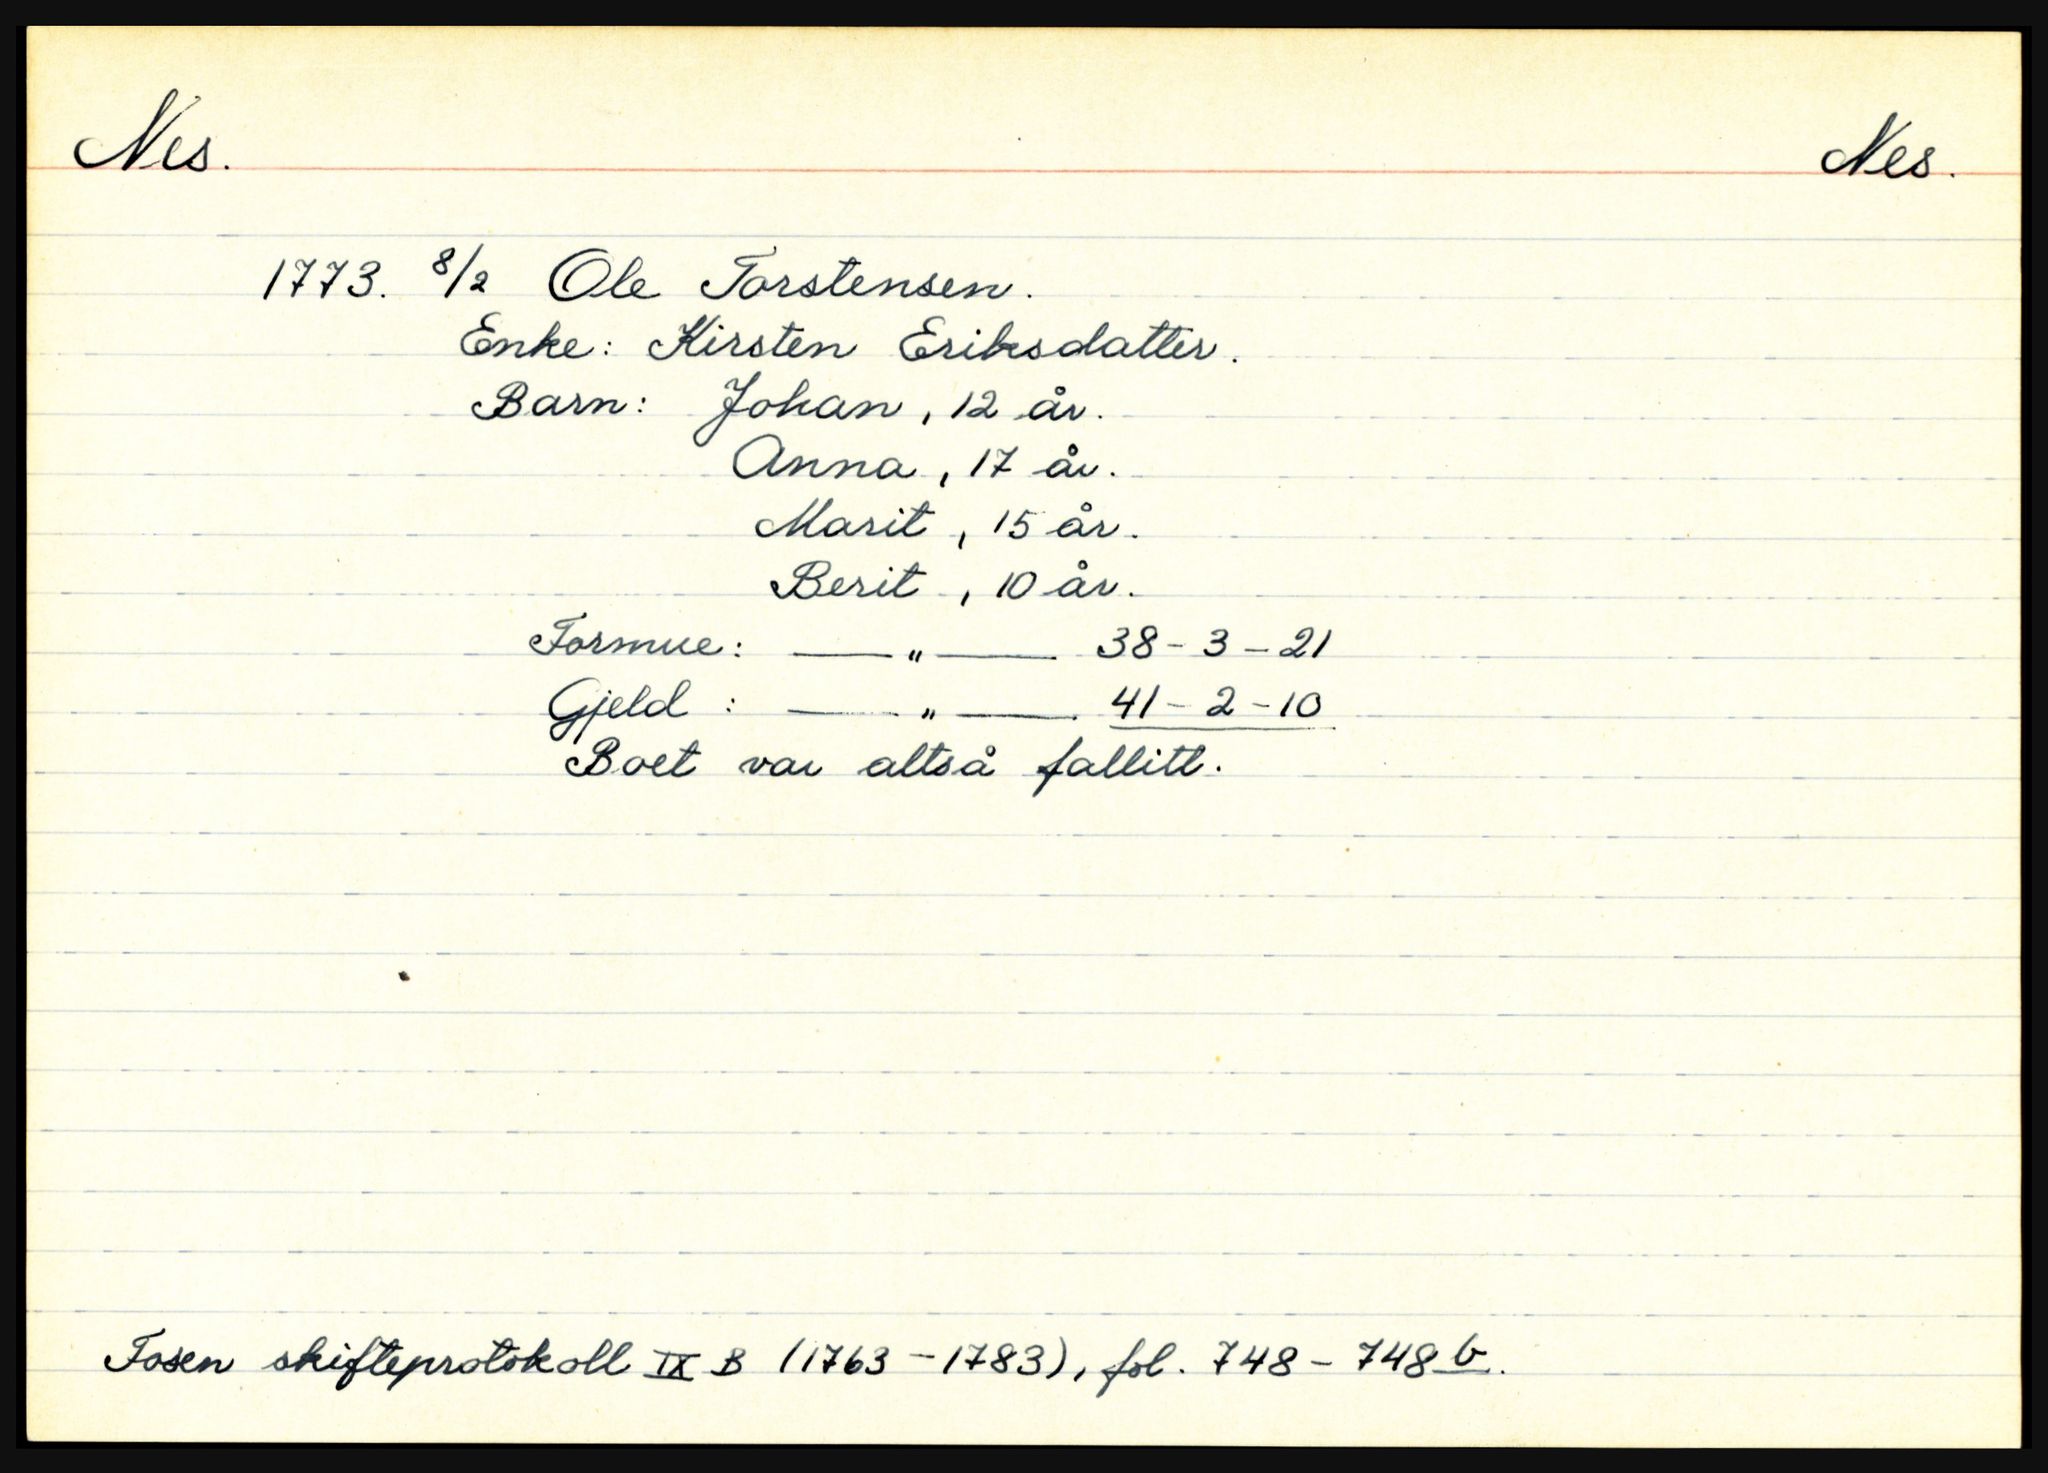 Nes. Nes.
1773. 8/2 Ole Torstensen.
Enke: Kirsten Eriksdatter.
Barn: Johan, 12 år.
Anna, 17 år.
Marit, 15 år.
Berit, 10 år.
Formue: —— " —— 38 - 3 - 21
Gjeld : —— " —— 41 - 2 - 10
Boet var altså fallitt.
Fosen skifteprotokoll IX B (1763 - 1783), fol. 748 - 748 b.